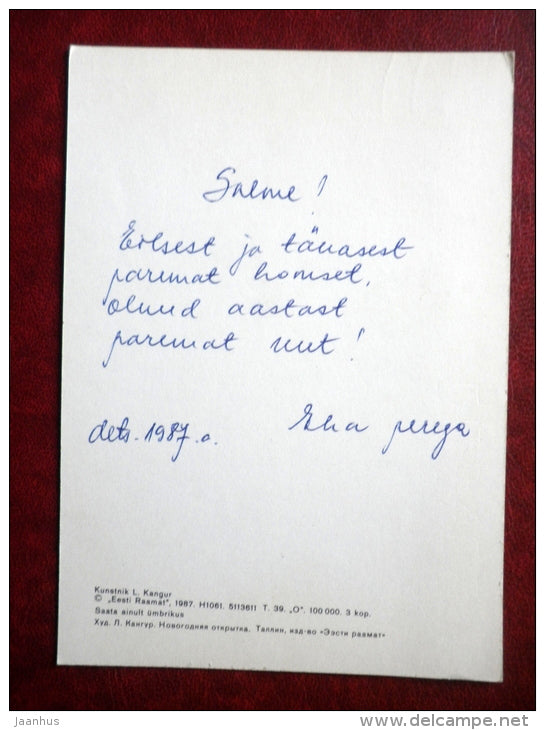 Salme!
Eilsest ja tänasest
paremat homset,
olnud aastast
paremat uut!
dets. 1987.a.
Elna perega
Kunstnik L. Kangur
© „Eesti Raamat", 1987. H1061. 5113611 T. 39. „O". 100 000. 3 kop.
Saata ainult ümbrikus
Худ. Л. Кангур. Новогодняя открытка. Таллин, изд-во «Ээсти раамат»
jaanhus
www.delcampe.net